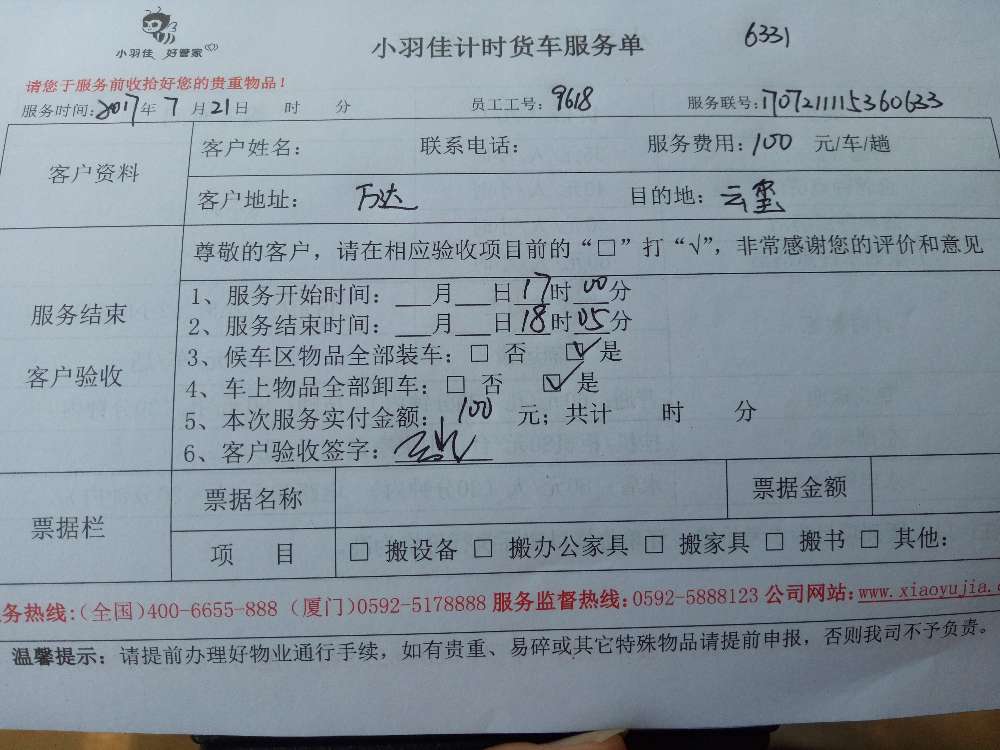 小羽佳 好管家
小羽佳计时货车服务单 6331
请您于服务前收拾好您的贵重物品！
服务时间：2017年 7 月 21日 时 分 员工工号：9618 服务联号：1707211115360633
客户资料
客户姓名： 联系电话： 服务费用：100 元/车/趟
客户地址： 万达 目的地：云玺
尊敬的客户，请在相应验收项目前的“□”打“√”，非常感谢您的评价和意见
服务结束
客户验收
1、服务开始时间：___月___日17时00分
2、服务结束时间：___月___日18时05分
3、候车区物品全部装车：□ 否 ☑ 是
4、车上物品全部卸车：□ 否 ☑ 是
5、本次服务实付金额：100 元；共计 时 分
6、客户验收签字：
票据栏
票据名称 票据金额
项 目 □ 搬设备 □ 搬办公家具 □ 搬家具 □ 搬书 □ 其他：
务热线：（全国）400-6655-888（厦门）0592-5178888 服务监督热线：0592-5888123 公司网站：www.xiaoyujia.c
温馨提示：请提前办理好物业通行手续，如有贵重、易碎或其它特殊物品请提前申报，否则我司不予负责。